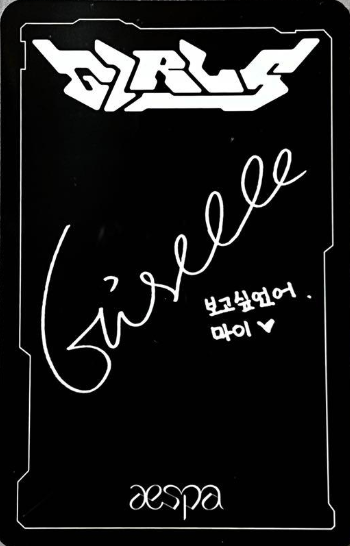 GIRLS
Giselle
보고싶었어.
마이 ♥
aespa